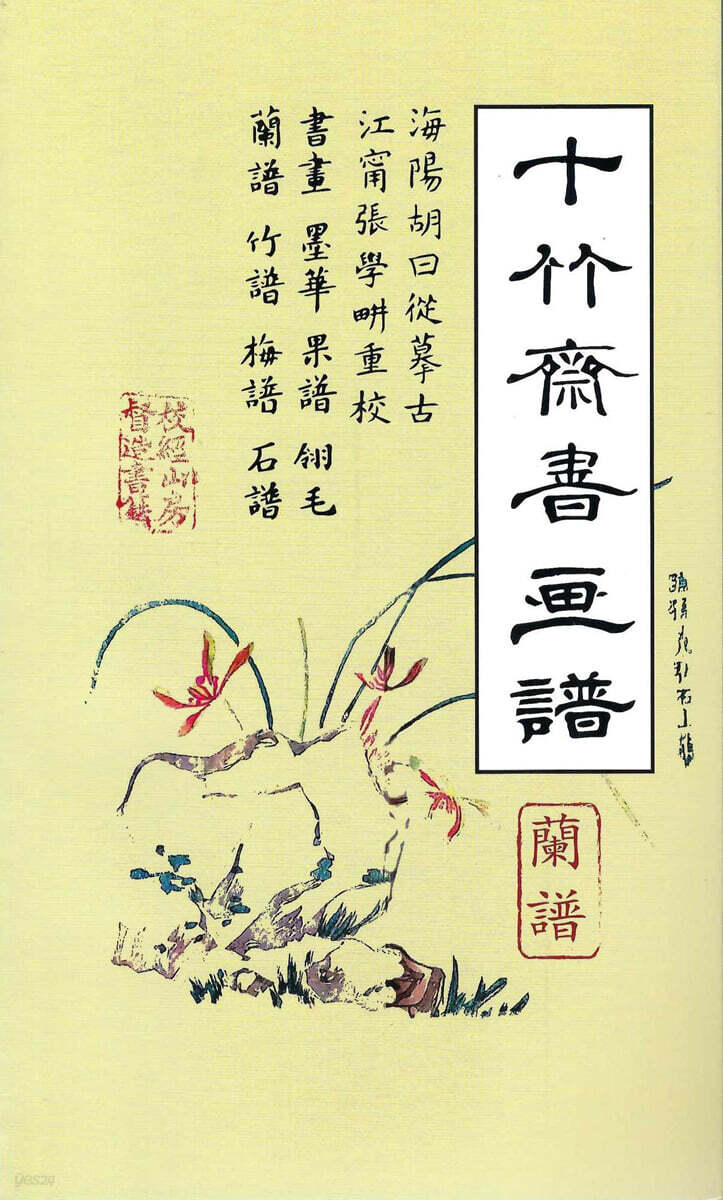 十竹齋書画譜
海陽胡曰從摹古
江甯張學畊重校
書畫 墨華 果譜 翎毛
蘭譜 竹譜 梅譜 石譜
校經山房
督造書籍
蘭譜
yes24